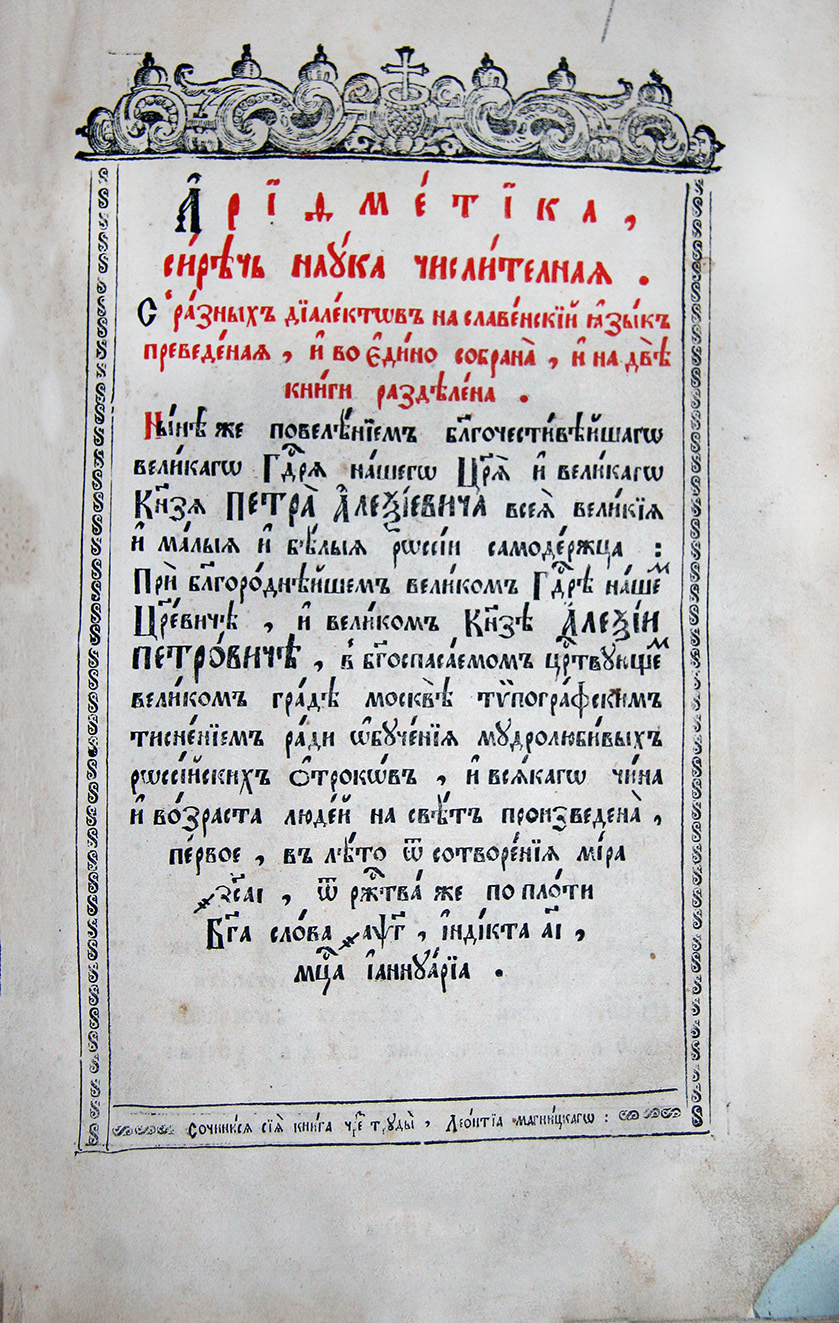 А҆ріѳме́тіка,
си́рѣчь наꙋ́ка числи́телная.
С̾ ра́зныхъ діале́ктѡвъ на славе́нскїй ꙗ҆зы́къ
преведе́ная, и҆ во є҆ди́но собрана̀, и҆ на двѣ̀
кни́ги раздѣле́на.
Ны́нѣ же повелѣ́нїемъ бл҃гочести́вѣйшагѡ
вели́кагѡ Гдⷭ҇рѧ на́шегѡ Цр҃ѧ̀ и҆ вели́кагѡ
Кнѧ҃зѧ ПЕТРА̀ А҆ЛЕѮІ́ЕВИЧА всеѧ̀ вели́кїѧ
и҆ ма́лыѧ и҆ бѣ́лыѧ рѡссі́и самоде́ржца :
Прѝ бл҃горо́днѣйшемъ вели́комъ Гдⷭ҇рѣ на́шеⷨ
Цр҃е́вичѣ, и҆ вели́комъ Кн҃зѣ А҆ЛЕѮІ́И
ПЕТРО́ВИЧѢ, в̾ бг҃оспаса́емомъ црⷭ҇твꙋющеⷨ
вели́комъ гра́дѣ москвѣ̀ тѷпогра́фскимъ
тисне́нїемъ ра́ди ѡ҆бꙋче́нїѧ мꙋдролюби́выхъ
рѡссі́йскихъ ѻ҆́трокѡвъ, и҆ всѧ́кагѡ чи́на
и҆ во́зраста люде́й на свѣ́тъ произведена̀,
пе́рвое, въ лѣ́то ѿ сотворе́нїѧ мі́ра
҂зс҃аі, ѿ рж҃тва́ же по пло́ти
Бг҃а сло́ва ҂аѱ҃г, і҆нді́кта а҃і,
мцⷭ҇а і҆аннꙋа́рїа.
Сочини́сѧ сїѧ̀ кни́га чре́з трꙋды̀, Лео́нтїа магни́цкагѡ :